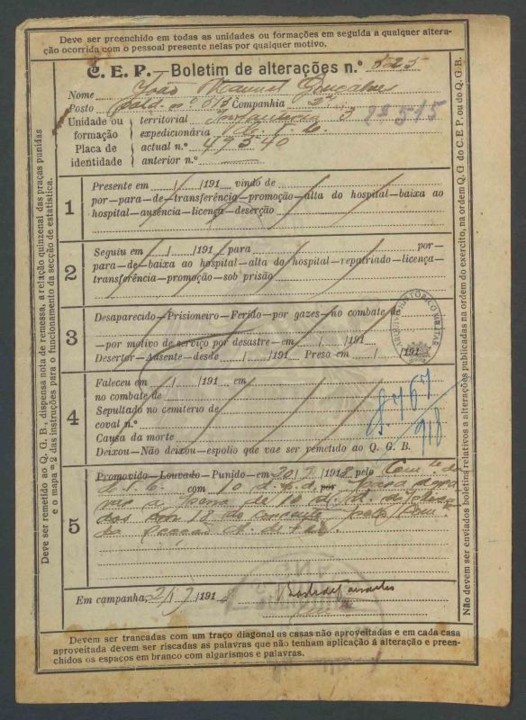 Deve ser preenchido em todas as unidades ou formações em seguida a qualquer altera-
ção ocorrida com o pessoal presente nelas por qualquer motivo.
C. E. P. - Boletim de alterações n.º 525
Nome João Manuel Gonçalves
Posto sold. nº 515 Companhia 2ª
Unidade ou formação
territorial Infantaria 3
nº 515
expedicionária
Placa de identidade
actual n.º 49540
anterior n.º
1
Presente em / /191 vindo de
por—para—de—transferência—promoção—alta do hospital—baixa ao
hospital—ausência—licença—deserção
2
Seguiu em / /191 para por—
para—de—baixa ao hospital—alta do hospital—repatriado—licença—
transferência—promoção—sob prisão
3
Desaparecado—Prisioneiro—Ferido—por gazes—no combate de
—por motivo de serviço por desastre—em / /191
Desertor—Ausente—desde / /191 Preso em / /191
4
Faleceu em / /191 em
no combate de
Sepultado no cemiterio de
coval n.º
Causa da morte
Deixou—Não deixou—espolio que vae ser remetido ao Q. G. B.
8467
918
5
Promovido—Louvado—Punido—em 20/7/1918 pelo
com 10 d. por
a pena de 10
dos com 18 do corrente pelo
Em campanha, 21/7/1918
Devem ser trancadas com um traço diagonal as casas não aproveitadas e em cada casa
aproveitada devem ser riscadas as palavras que não tenham aplicação á alteração e preen-
chidos os espaços em branco com algarismos e palavras.
Deve ser remetido ao Q. G. B., dispensa nota de remessa, a relação quinzenal das praças punidas
e o mapa nº 2 das instruções para o funcionamento da secção de estatistica.
Não devem ser enviados boletins relativos a alterações publicadas na ordem do exercito, na ordem Q. G. do C. E. P. ou do Q. G. B.